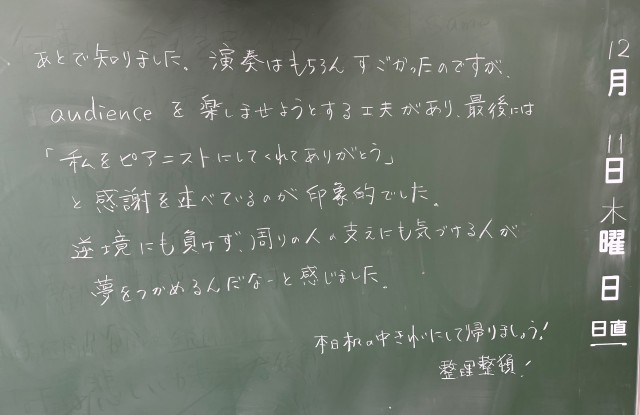 あとで知りました。演奏はもちろんすごかったのですが、
audienceを楽しませようとする工夫があり、最後には
「私をピアニストにしてくれてありがとう」
と感謝を述べているのが印象的でした。
逆境にも負けず、周りの人の支えにも気づける人が
夢をつかめるんだなーと感じました。
本日机の中きれいにして帰りましょう!
整理整頓!
12月11日木曜日
日直